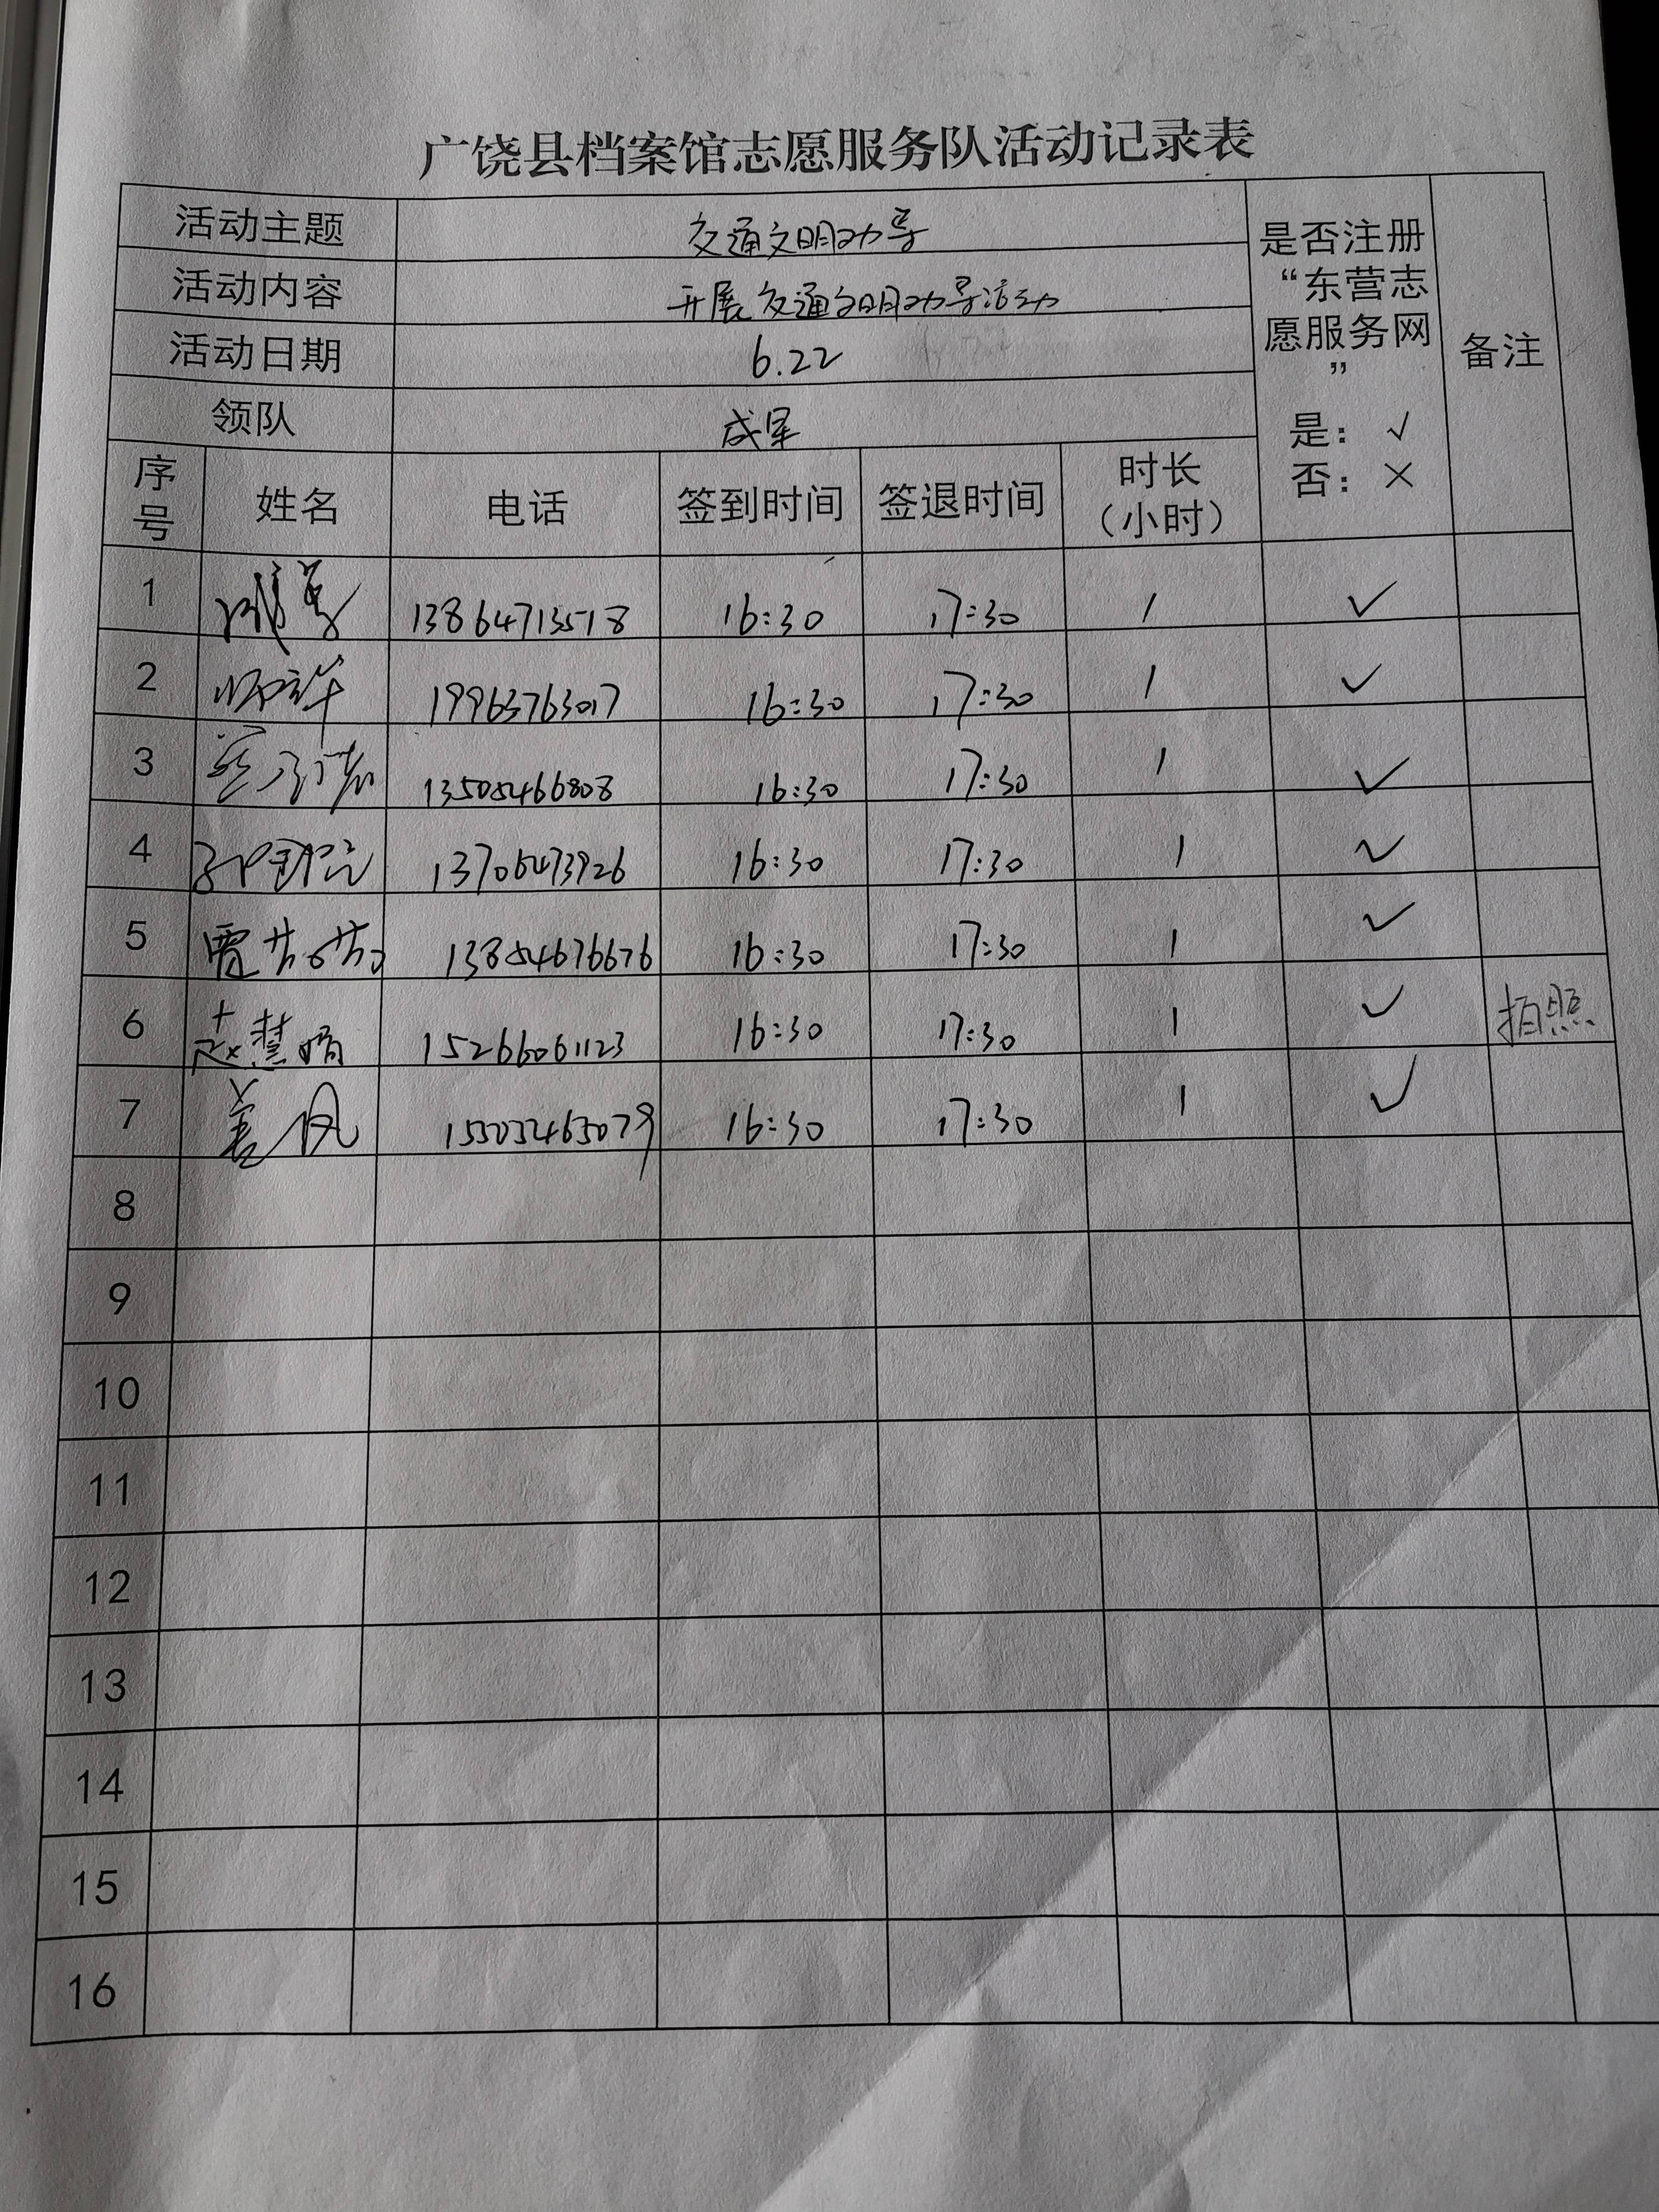 广饶县档案馆志愿服务队活动记录表
活动主题 交通文明劝导 是否注册“东营志愿服务网” 是：√ 否：× 备注
活动内容 开展交通文明劝导活动
活动日期 6.22
领队 成军
序号 姓名 电话 签到时间 签退时间 时长（小时）
1 13864713518 16:30 17:30 1 ✓
2 19963763017 16:30 17:30 1 ✓
3 13505466808 16:30 17:30 1 ✓
4 13706473926 16:30 17:30 1 ✓
5 贾芳芳 13854676676 16:30 17:30 1 ✓
6 赵慧娟 15266061123 16:30 17:30 1 ✓ 拍照
7 姜风 15505465079 16:30 17:30 1 ✓
8
9
10
11
12
13
14
15
16